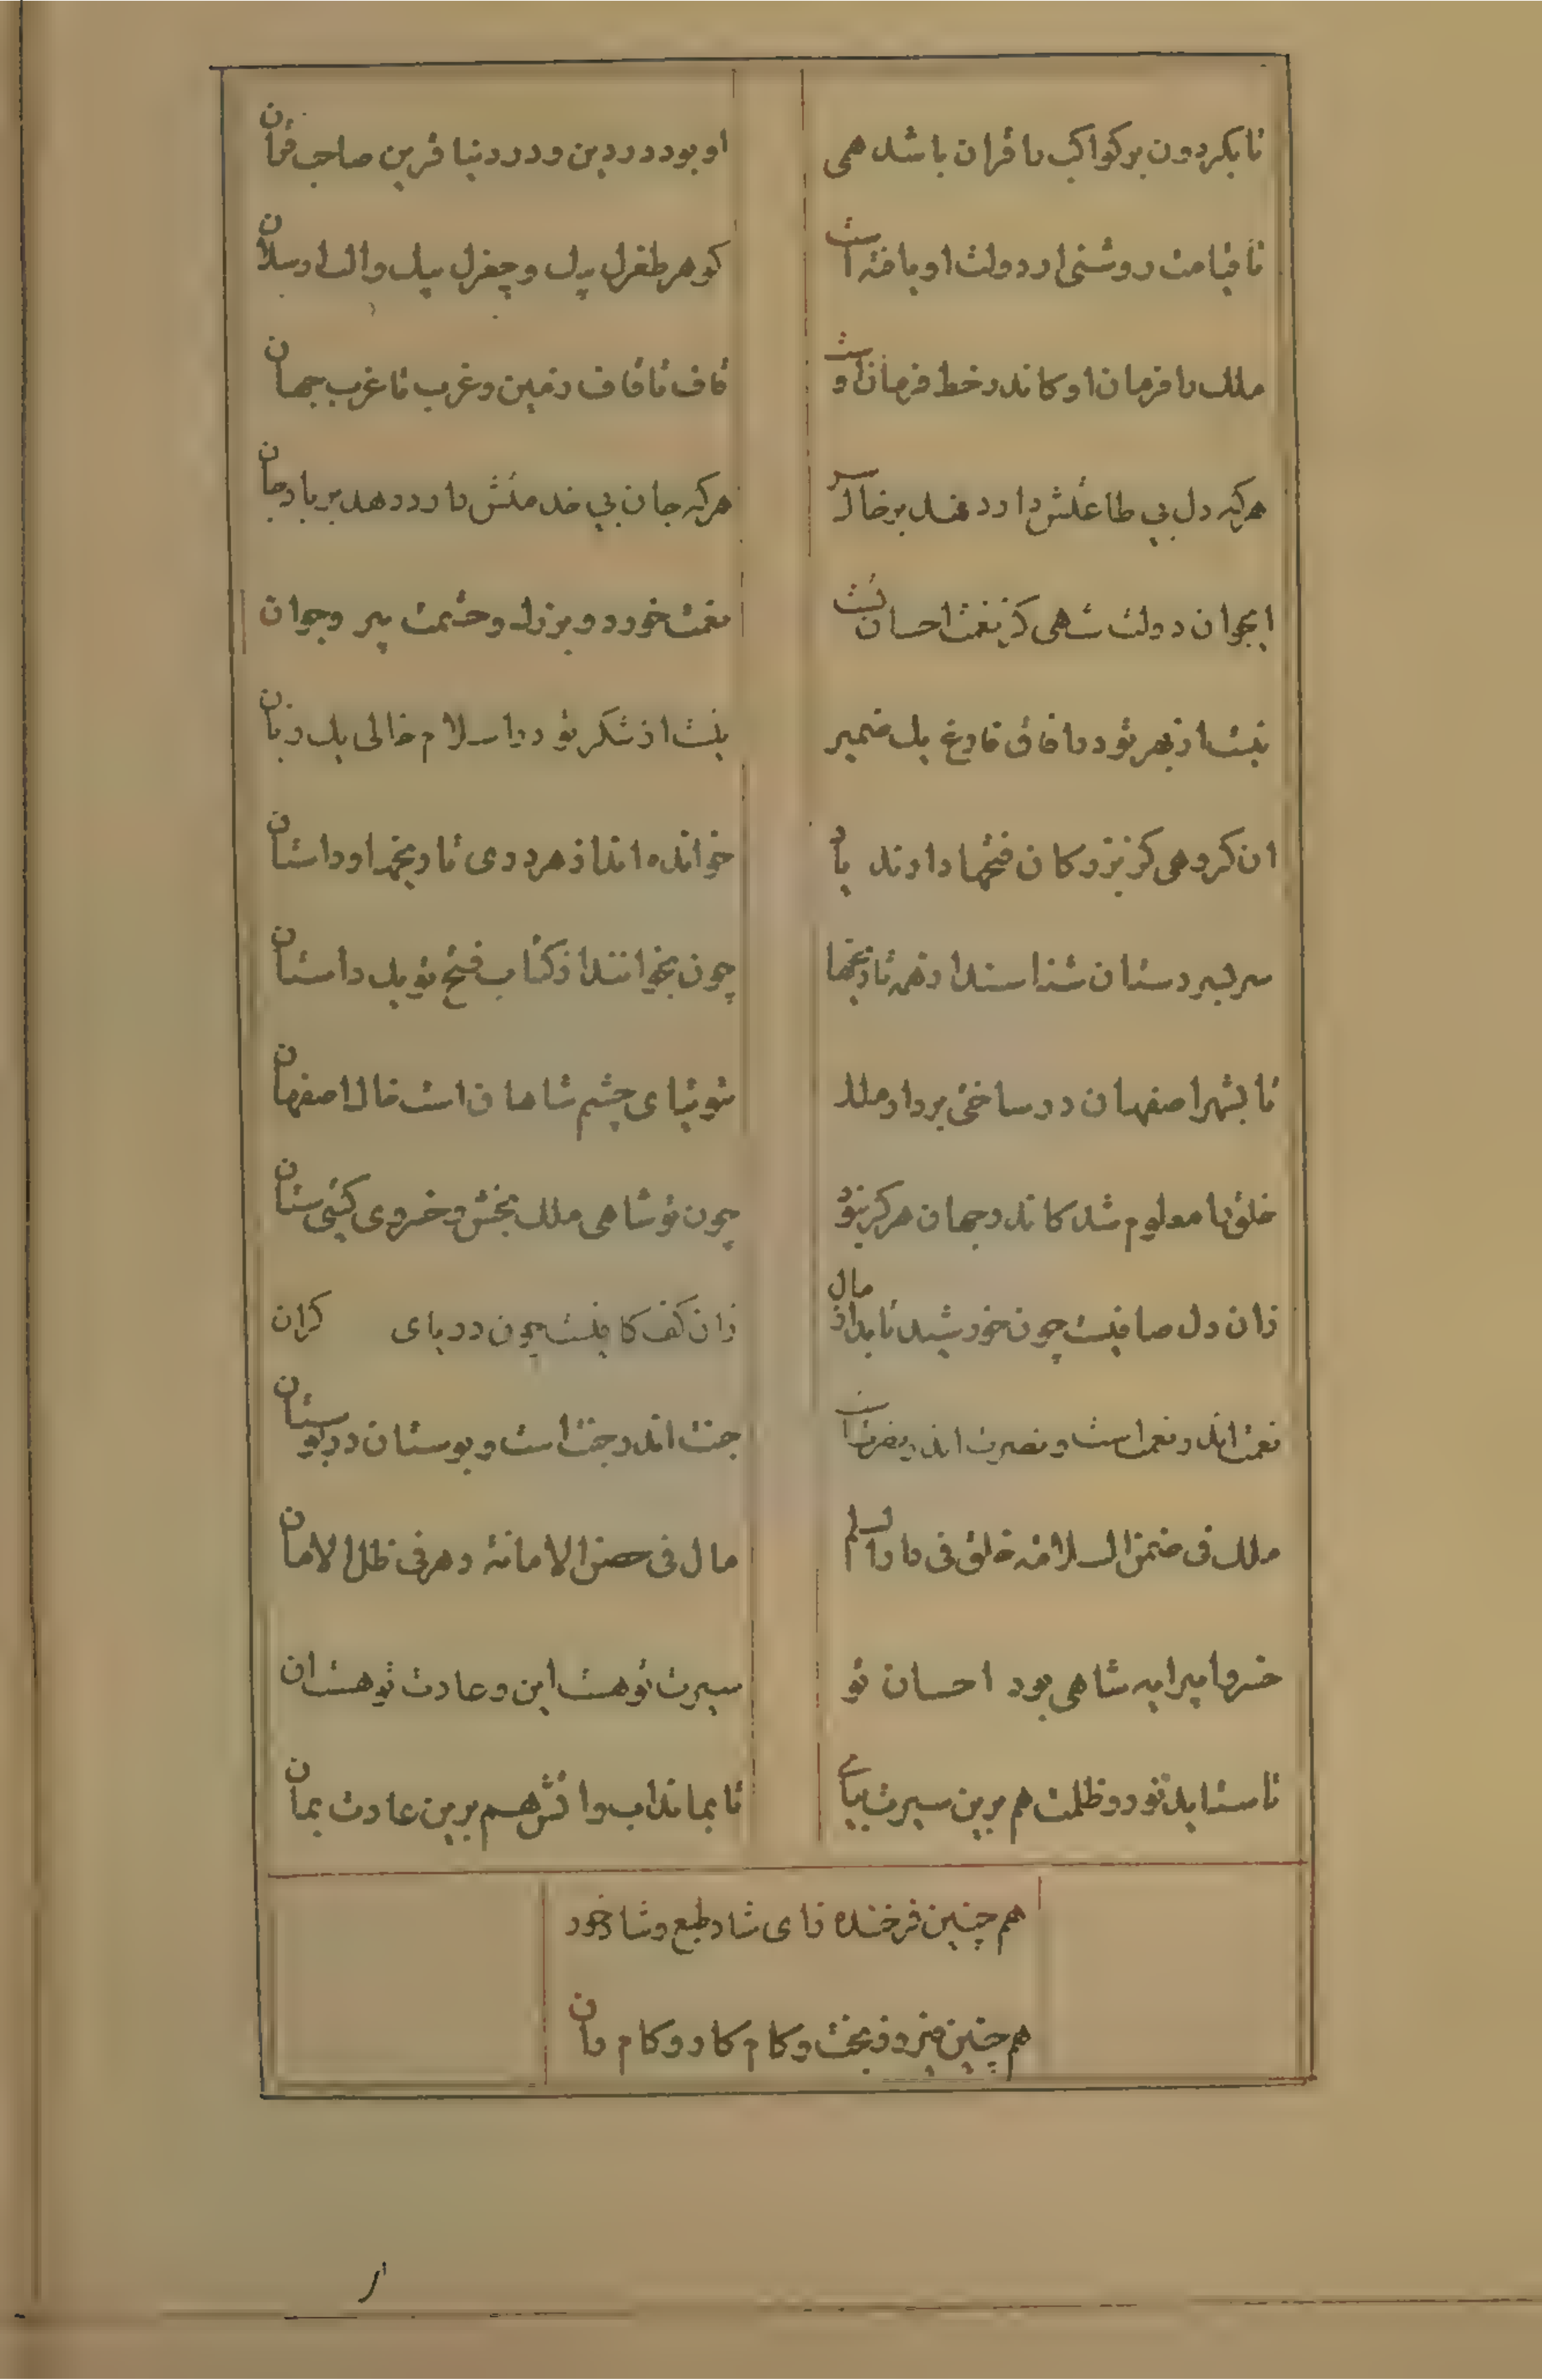 تا بگردون بر کواکب را قران باشد همی
او بود در دین و در دنیا قرین صاحب قران
تا قیامت روشنی از دولت او یافته است
گوهر طغرل بیک و چغرل بیک و الب ارسلان
ملک را فرمان او کاندر خط فرمان اوست
قاف تا قاف زمین و غرب تا غرب جهان
هرکه دل بی طاعتش دارد نهد بر خاک سر
هرکه جان بی خدمتش دارد دهد بر باد جان
ایجوان دولت شهی کز نعمت احسان تست
نعمت خورد و بزرک و حشمت پیر و جوان
نیست از بهر تو در آفاق فارغ یک ضمیر
نیست از شکر تو در اسلام خالی یک زبان
ان کروهی کز بزرکان فتحها دارند یاد
خوانده اند از هر دری تاریخ او داستان
سر بسر دستان شناسند از همه تاریخها
چون بخوانند از کتاب فتح تو یک داستان
تا بشهر اصفهان در ساختی بر دار ملک
توتیای چشم شاهان است خاک اصفهان
خلق را معلوم شد کاندر جهان هرکز نبود
چون تو شاهی ملک بخش و خسروی کیتی ستان
زان دل صافیست چون خورشید تابد از مال
زان کف کافیست چون دریای کران
نعمت اندر نعمت است و نصرت اندر نصرت است
جنت اندر جنت است و بوستان در بوستان
ملک فی ضمن السلامه خلق فی دار السلم
مال فی حصن الامانة دهر فی ظل الامان
خسروا پیرایه شاهی بود احسان تو
سیرت تو هست این و عادت تو هست ان
تا ستاید نور و ظلمت هم برین سیرت بپای
تا بماند اب و اتش هم برین عادت بمان
هم چنین فرخنده رای شاد طبع و شاد خور
هم چنین فیروز بخت و کام کار و کام ران